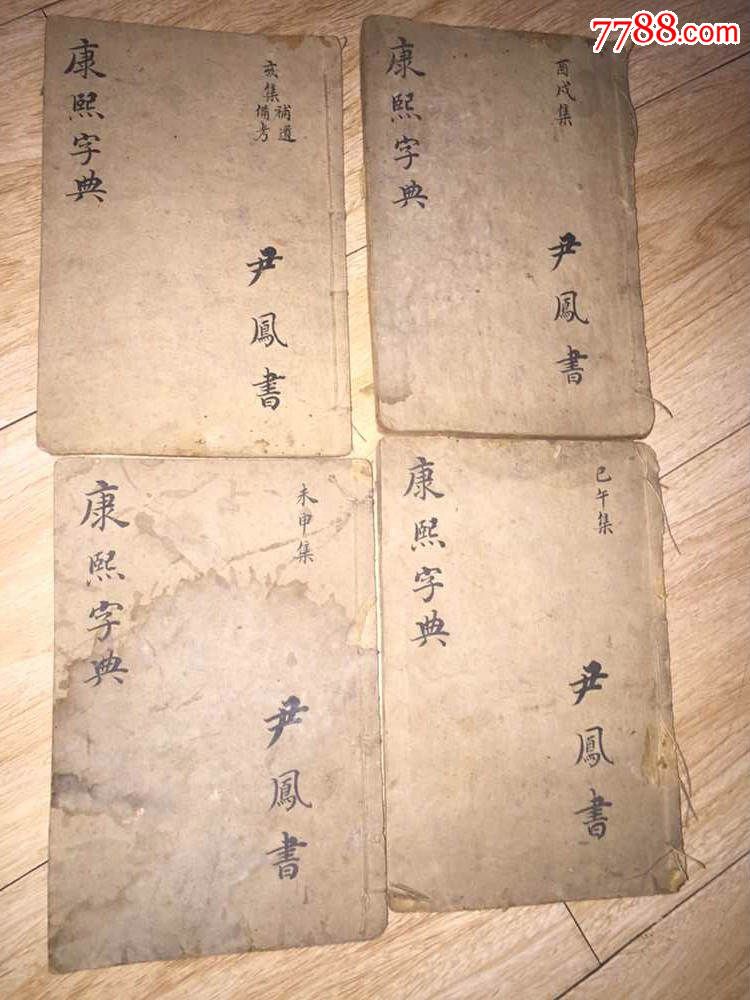 7788.com
康熙字典
亥集補遺
備考
尹鳳書
康熙字典
酉戌集
尹鳳書
康熙字典
未申集
尹鳳書
康熙字典
巳午集
尹鳳書